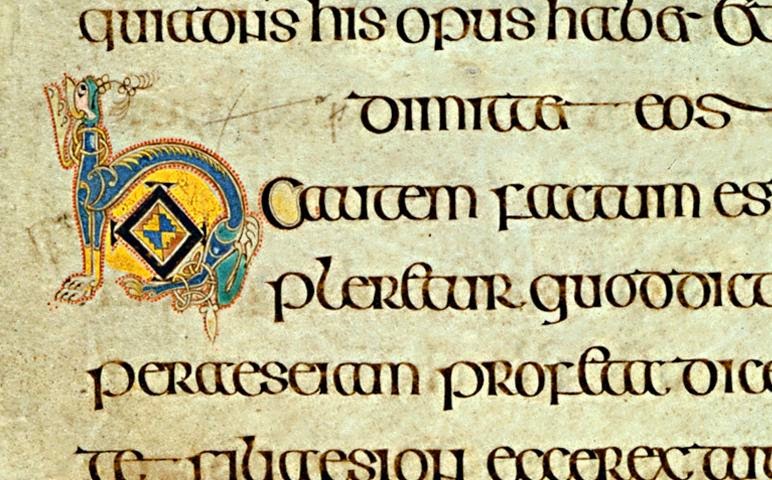 quiadoNs his opus habet et
dimittet eos
hCautem factum es
pleretur quoddict
peraeseiam profeta dice
te filiaesion eccerextuu